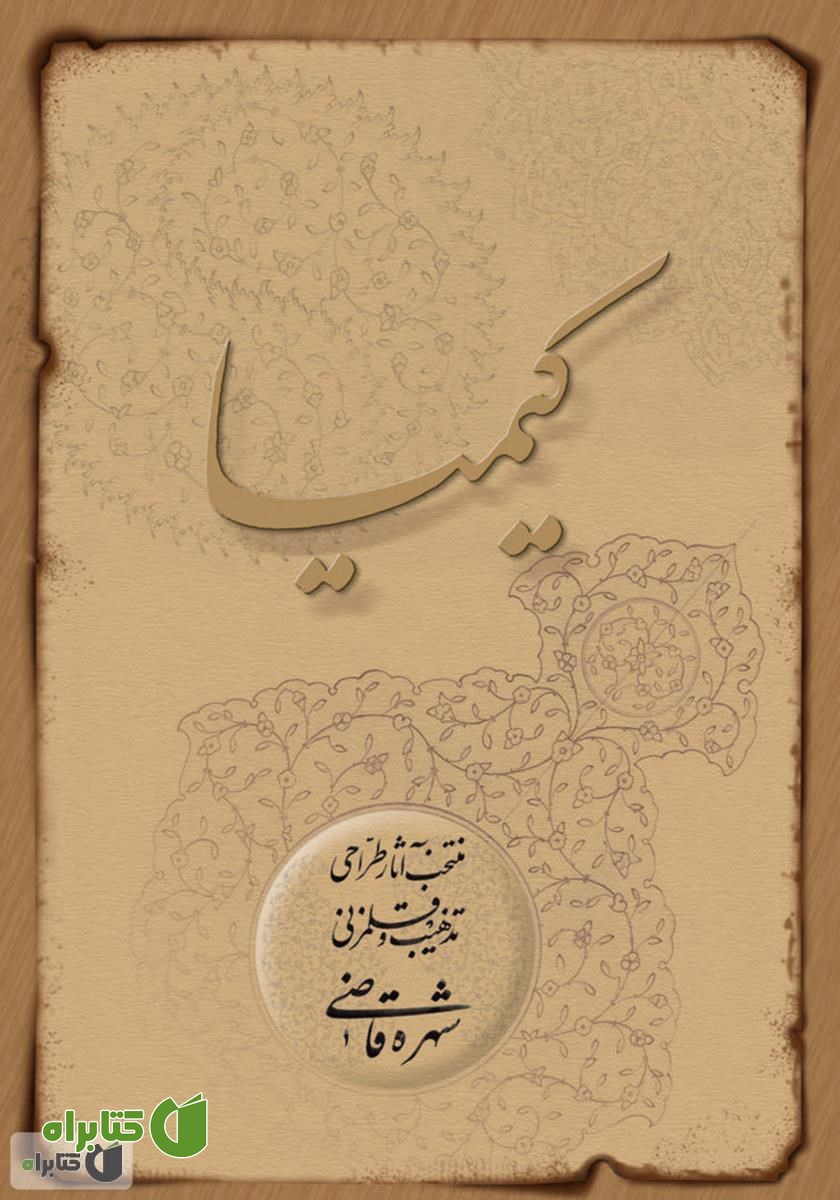 کیمیا
منتخب آثار طرّاحی
تذهیب و قلمزنی
شهره قاضی
کتابراه
کتابراه